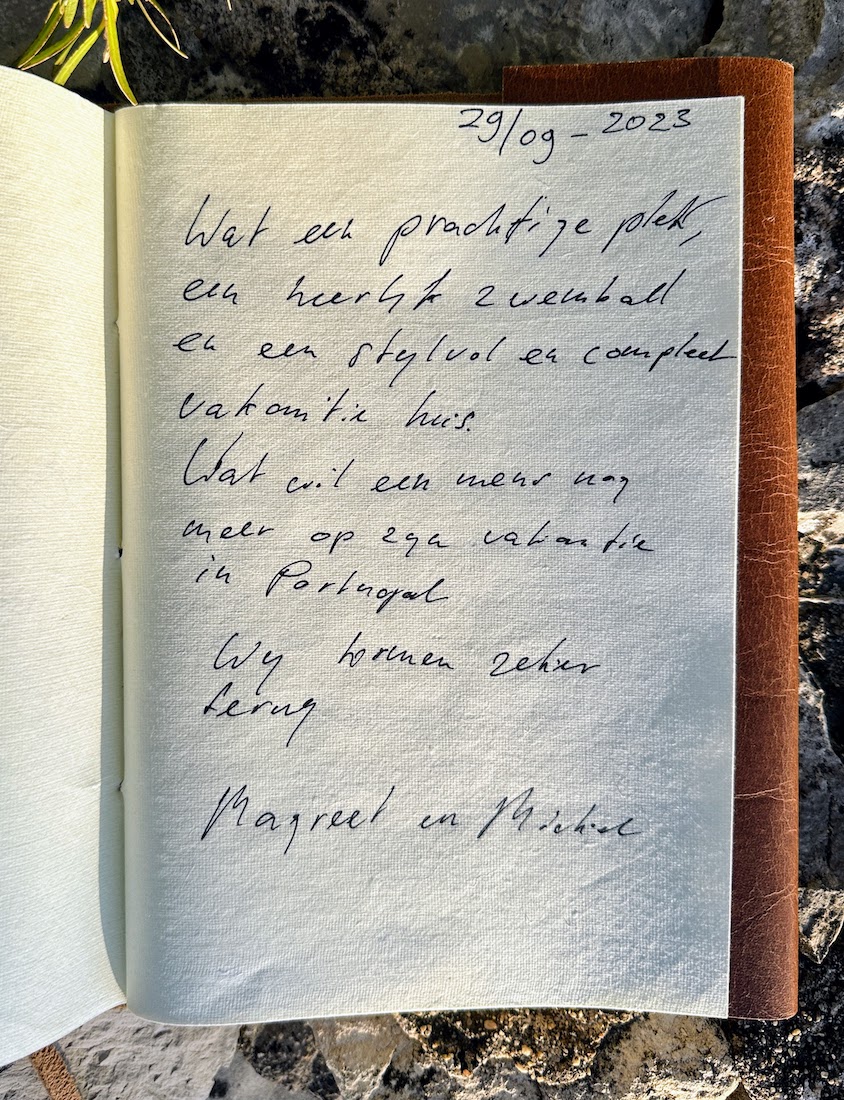 29/09 - 2023
Wat een prachtige plek,
een heerlijk zwembad
en een stylvol en compleet
vakantie huis.
Wat wil een mens nog
meer op zyn vakantie
in Portugal
Wy komen zeker
terug
Magreet en Michiel